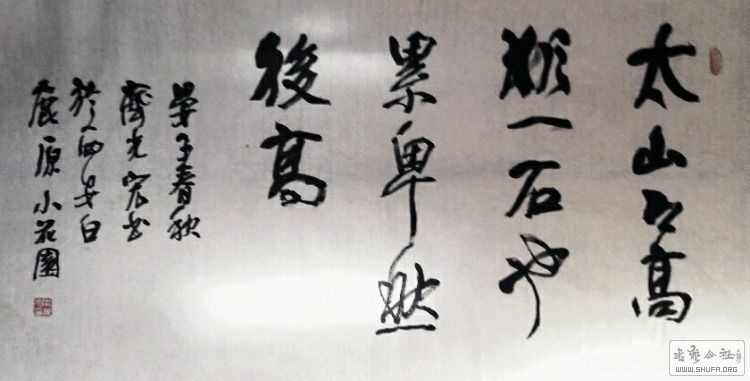 太山之高
一石也
累卑然
後高
晏子春秋
齊光宏书
於西安白
鹿原小花園
書藝公社
WWW.SHUFA.ORG